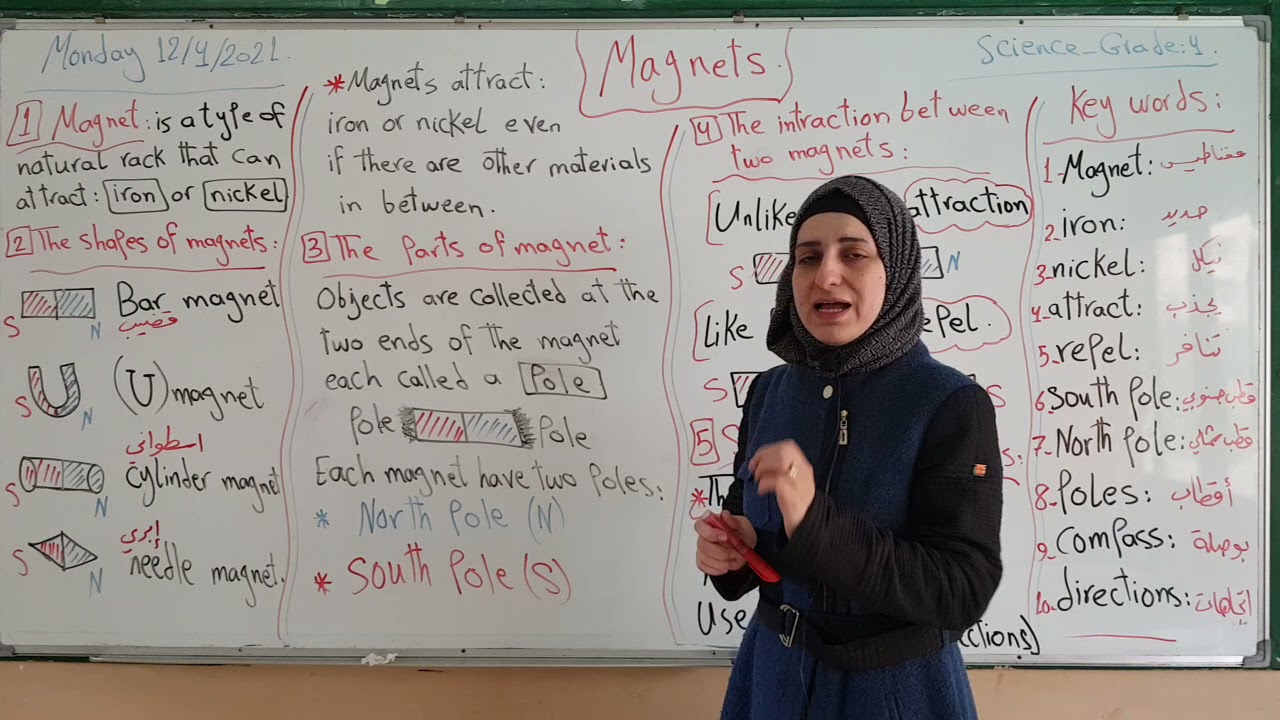 Monday 12/4/2021.
Magnets.
Science_Grade:4.
1 Magnet: is a type of
natural rack that can
attract: iron or nickel
2 The shapes of magnets:
S N Bar magnet
قضيب
S N (U) magnet
اسطواني
S N cylinder magnet
إبري
S N needle magnet.
* Magnets attract:
iron or nickel even
if there are other materials
in between.
3 The Parts of magnet:
Objects are collected at the
two ends of the magnet
each called a Pole
Pole Pole
Each magnet have two Poles:
* North Pole (N)
* South Pole (S)
4 The intraction between
two magnets:
Unlike attraction
S N
Like repel.
S S
5 S s:
* Th
Use ctions)
Key words:
1_ Magnet: مغناطيس
2_ iron: حديد
3_ nickel: نيكل
4_ attract: يجذب
5_ repel: تنافر
6_ South Pole: قطب جنوبي
7_ North Pole: قطب شمالي
8_ Poles: أقطاب
9_ Compass: بوصلة
10_ directions: اتجاهات